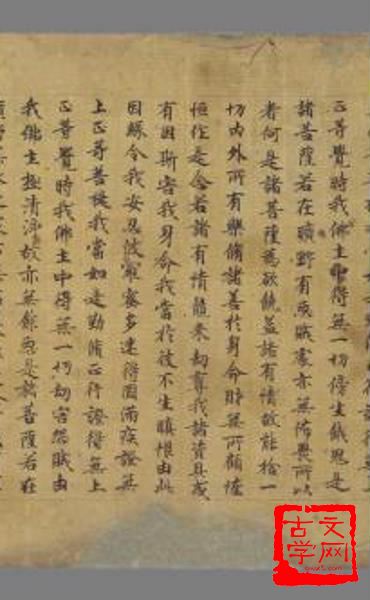 正等覺時我佛土中得無一切傍生餓鬼是
諸菩薩若在曠野有惡賊處亦無怖畏所以
者何是諸菩薩為欲饒益諸有情故能捨一
切內外所有樂脩諸善於身命財無所顧悋
恒作是念若諸有情競來劫奪我諸資具或
有因斯害我身命我當於彼不生瞋恨由此
因緣令我安忍波羅蜜多速得圓滿疾證無
上正等菩提我當如是勤脩正行證得無上
正等覺時我佛土中得無一切劫害怨賊由
我佛土極清淨故亦無餘惡是諸菩薩若在
古文
学网